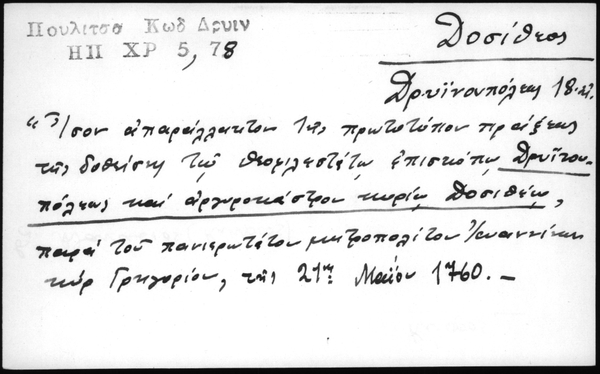 Πουλιτσα Κωδ Δρυιν
ΗΠ ΧΡ 5, 78
Δοσίθεος
Δρυϊνουπόλεως 18.
"Ἴσον ἀπαράλλακτον τῆς πρωτοτύπου πράξεως
τῆς δοθείσης τῷ θεοφιλεστάτῳ ἐπισκόπῳ Δρυϊνου-
πόλεως καί ἀργυροκάστρου κυρίῳ Δοσιθέῳ,
παρά τοῦ πανιερωτάτου μητροπολίτου Ἰωαννίνων
κύρ Γρηγορίου, τῆς 21ης Μαΐου 1760.-